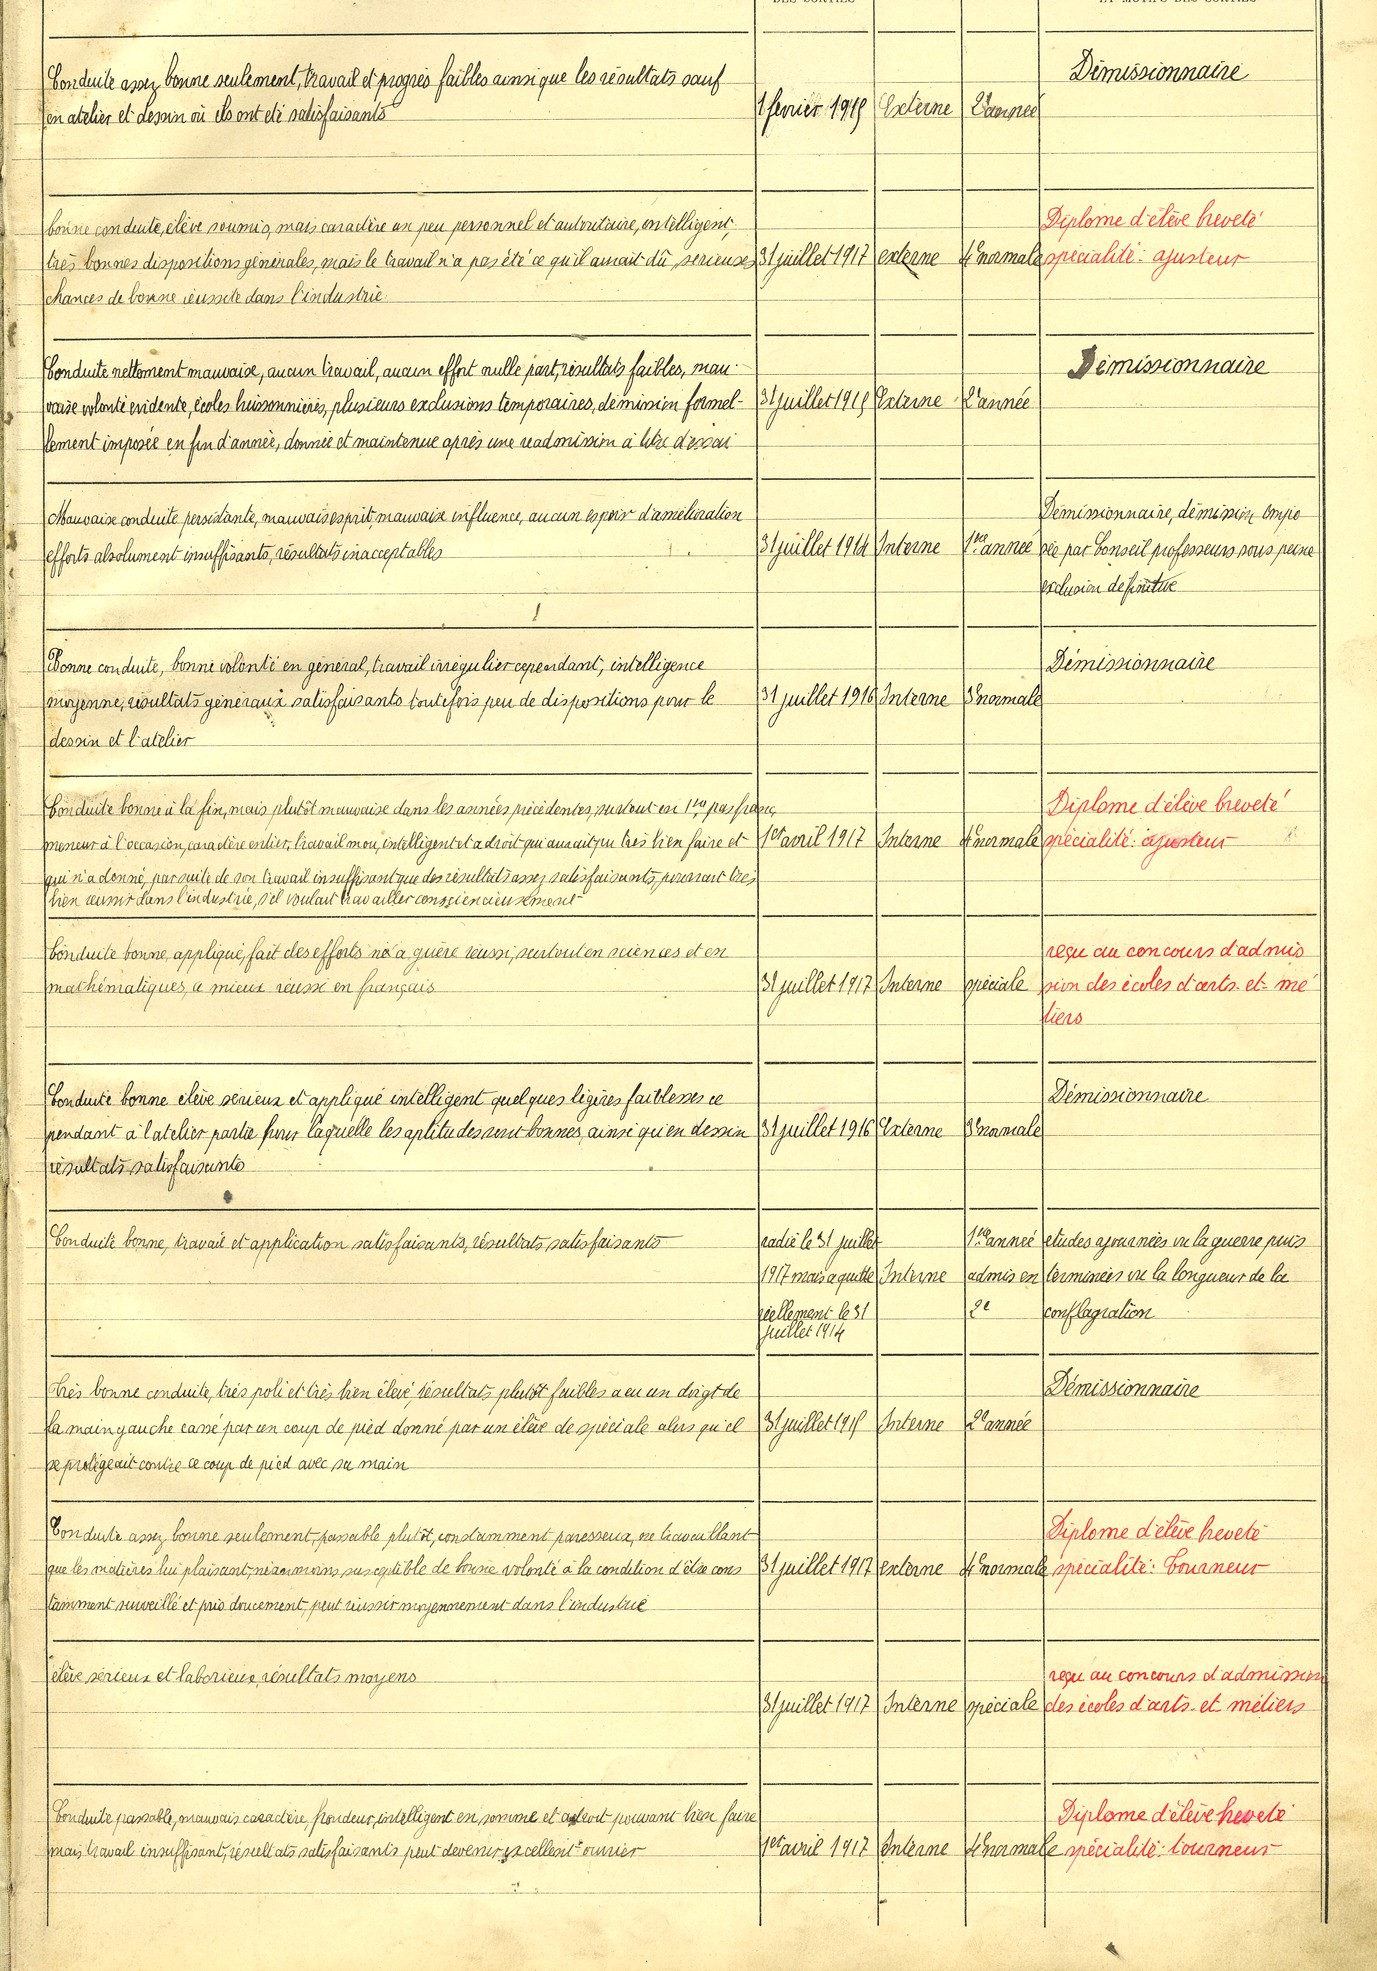 DES SORTIES
ET MOTIFS DES SORTIES
Conduite assez bonne seulement, travail et progrès faibles ainsi que les résultats sauf
en atelier et dessin où ils ont été satisfaisants
1 février 1915
Externe
2e année
Démissionnaire
bonne conduite, élève soumis, mais caractère un peu personnel et autoritaire, intelligent,
très bonnes dispositions générales, mais le travail n'a pas été ce qu'il aurait dû, serieuses
chances de bonne réussite dans l'industrie
31 juillet 1917
externe
4e normale
Diplome d'élève breveté
spécialité: ajusteur
Conduite nettement mauvaise, aucun travail, aucun effort nulle part, résultats faibles, mau-
vaise volonté évidente, écoles buissonnières, plusieurs exclusions temporaires, démission formel-
lement imposée en fin d'année, donnée et maintenue après une readmission à titre d'essai
31 juillet 1915
Externe
2e année
Démissionnaire
Mauvaise conduite persistante, mauvais esprit, mauvaise influence, aucun espoir d'amélioration
efforts absolument insuffisants, résultats inacceptables
31 juillet 1914
Interne
1ère année
Démissionnaire, démission impo
sée par Conseil professeurs sous peine
exclusion définitive
Bonne conduite, bonne volonté en général, travail irrégulier cependant, intelligence
moyenne, résultats généraux satisfaisants toutefois peu de dispositions pour le
dessin et l'atelier
31 juillet 1916
Interne
3e normale
Démissionnaire
Conduite bonne à la fin, mais plutôt mauvaise dans les années précédentes, surtout en 1ère, pas franc,
meneur à l'occasion, caractère entier, travail mou, intelligent et adroit qui aurait pu très bien faire et
qui n'a donné, par suite de son travail insuffisant que des résultats assez satisfaisants, pourrait très
bien réussir dans l'industrie, s'il voulait travailler consciencieusement
1er avril 1917
Interne
4e normale
Diplome d'élève breveté
spécialité: ajusteur
Conduite bonne, appliqué, fait des efforts n'a guère réussi, surtout en sciences et en
mathématiques, a mieux réussi en français
31 juillet 1917
Interne
spéciale
reçu au concours d'admis
sion des écoles d'arts-et-mé
tiers
Conduite bonne élève sérieux et appliqué intelligent quelques légères faiblesses ce
pendant à l'atelier partie pour laquelle les aptitudes sont bonnes, ainsi qu'en dessin
résultats satisfaisants
31 juillet 1916
Externe
3e normale
Démissionnaire
Conduite bonne, travail et application satisfaisants, résultats satisfaisants
radié le 31 juillet
1917 mais a quitté
réellement le 31
juillet 1914
Interne
1ère année
admis en
2e
etudes ajournées vu la guerre puis
terminées vu la longueur de la
conflagration
Très bonne conduite, très poli et très bien élevé, résultats plutôt faibles a eu un doigt de
la main gauche cassé par un coup de pied donné par un élève de spéciale alors qu'il
se protégeait contre ce coup de pied avec sa main
31 juillet 1915
Interne
2e année
Démissionnaire
Conduite assez bonne seulement, passable plutôt, constamment paresseux, ne travaillant
que les matières lui plaisant, néanmoins susceptible de bonne volonté à la condition d'être cons
tamment surveillé et pris doucement, peut réussir moyennement dans l'industrie
31 juillet 1917
externe
4e normale
Diplome d'élève breveté
spécialité: Tourneur
élève sérieux et laborieux, résultats moyens
31 juillet 1917
Interne
spéciale
reçu au concours d'admission
des écoles d'arts-et-métiers
Conduite passable, mauvais caractère, frondeur, intelligent en somme et adroit pouvant bien faire
mais travail insuffisant, résultats satisfaisants peut devenir excellent ouvrier
1er avril 1917
Interne
4e normale
Diplome d'élève breveté
spécialité: tourneur